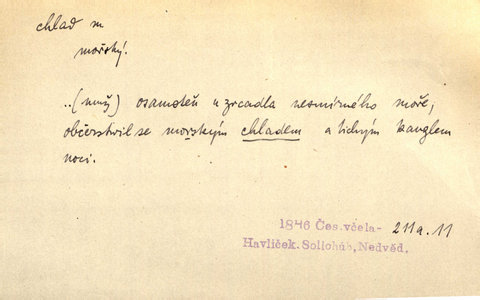 chlad m
mořský.
..(muž) osamotěn u zrcadla nesmírného moře,
občerstvil se mořským chladem a tichým kouzlem
noci.
1846 Čes.včela- 211a.11
Havlíček. Sollohub, Nedvěd.